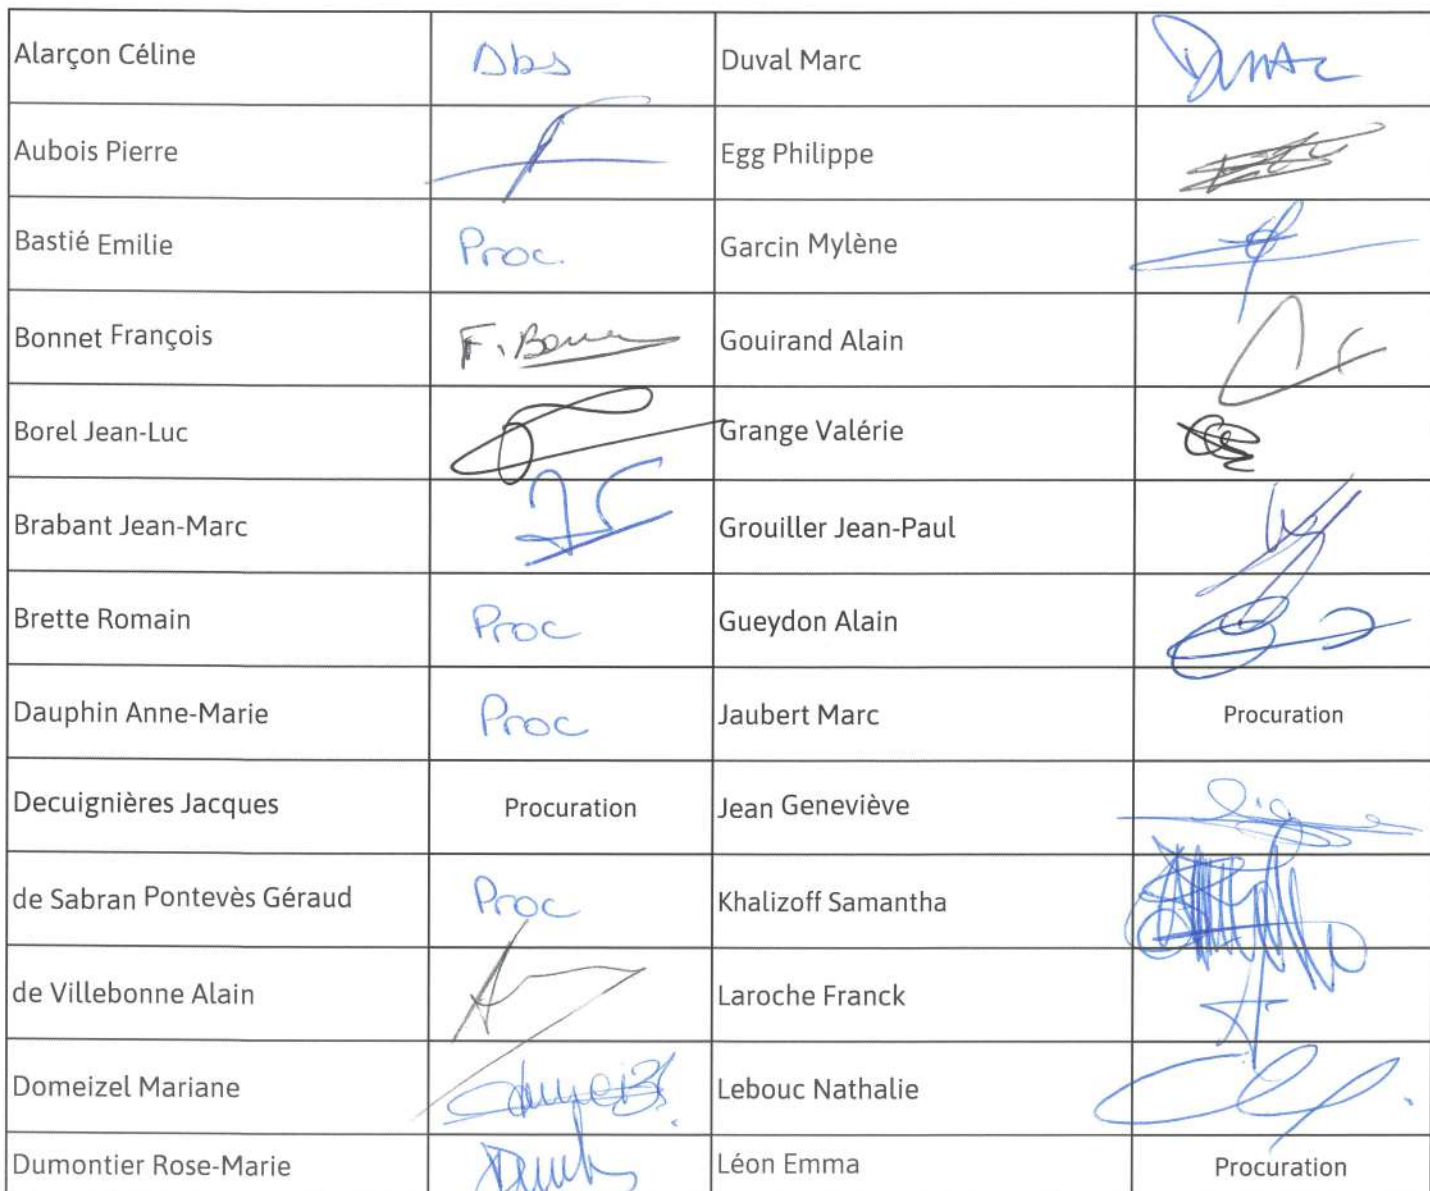 Alarçon Céline Abs Duval Marc
Aubois Pierre Egg Philippe
Bastié Emilie Proc. Garcin Mylène
Bonnet François F. Gouirand Alain
Borel Jean-Luc Grange Valérie
Brabant Jean-Marc Grouiller Jean-Paul
Brette Romain Proc Gueydon Alain
Dauphin Anne-Marie Proc Jaubert Marc Procuration
Decuignières Jacques Procuration Jean Geneviève
de Sabran Pontevès Géraud Proc Khalizoff Samantha
de Villebonne Alain Laroche Franck
Domeizel Mariane Lebouc Nathalie
Dumontier Rose-Marie Léon Emma Procuration